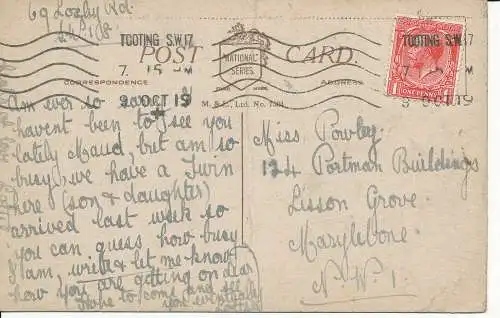 69 Loxly Rd.
TOOTING S.W.17
7. 15 PM
9 OCT 19
POST CARD.
NATIONAL SERIES
CORRESPONDENCE
ADDRESS
M. & L., Ltd. No.
TOOTING S.W.17
9 OCT 19
ONE PENNY
Am ever so sorry I
havent been to see you
lately Maud, but am so
busy, we have a Twin
here (son & daughter)
arrived last week so
you can guess how busy
I am, write & let me know
how you are getting on dear
hope to come and see
you eventually
Miss Powley.
124 Portman Buildings
Lisson Grove.
Marylebone.
N.W.1.